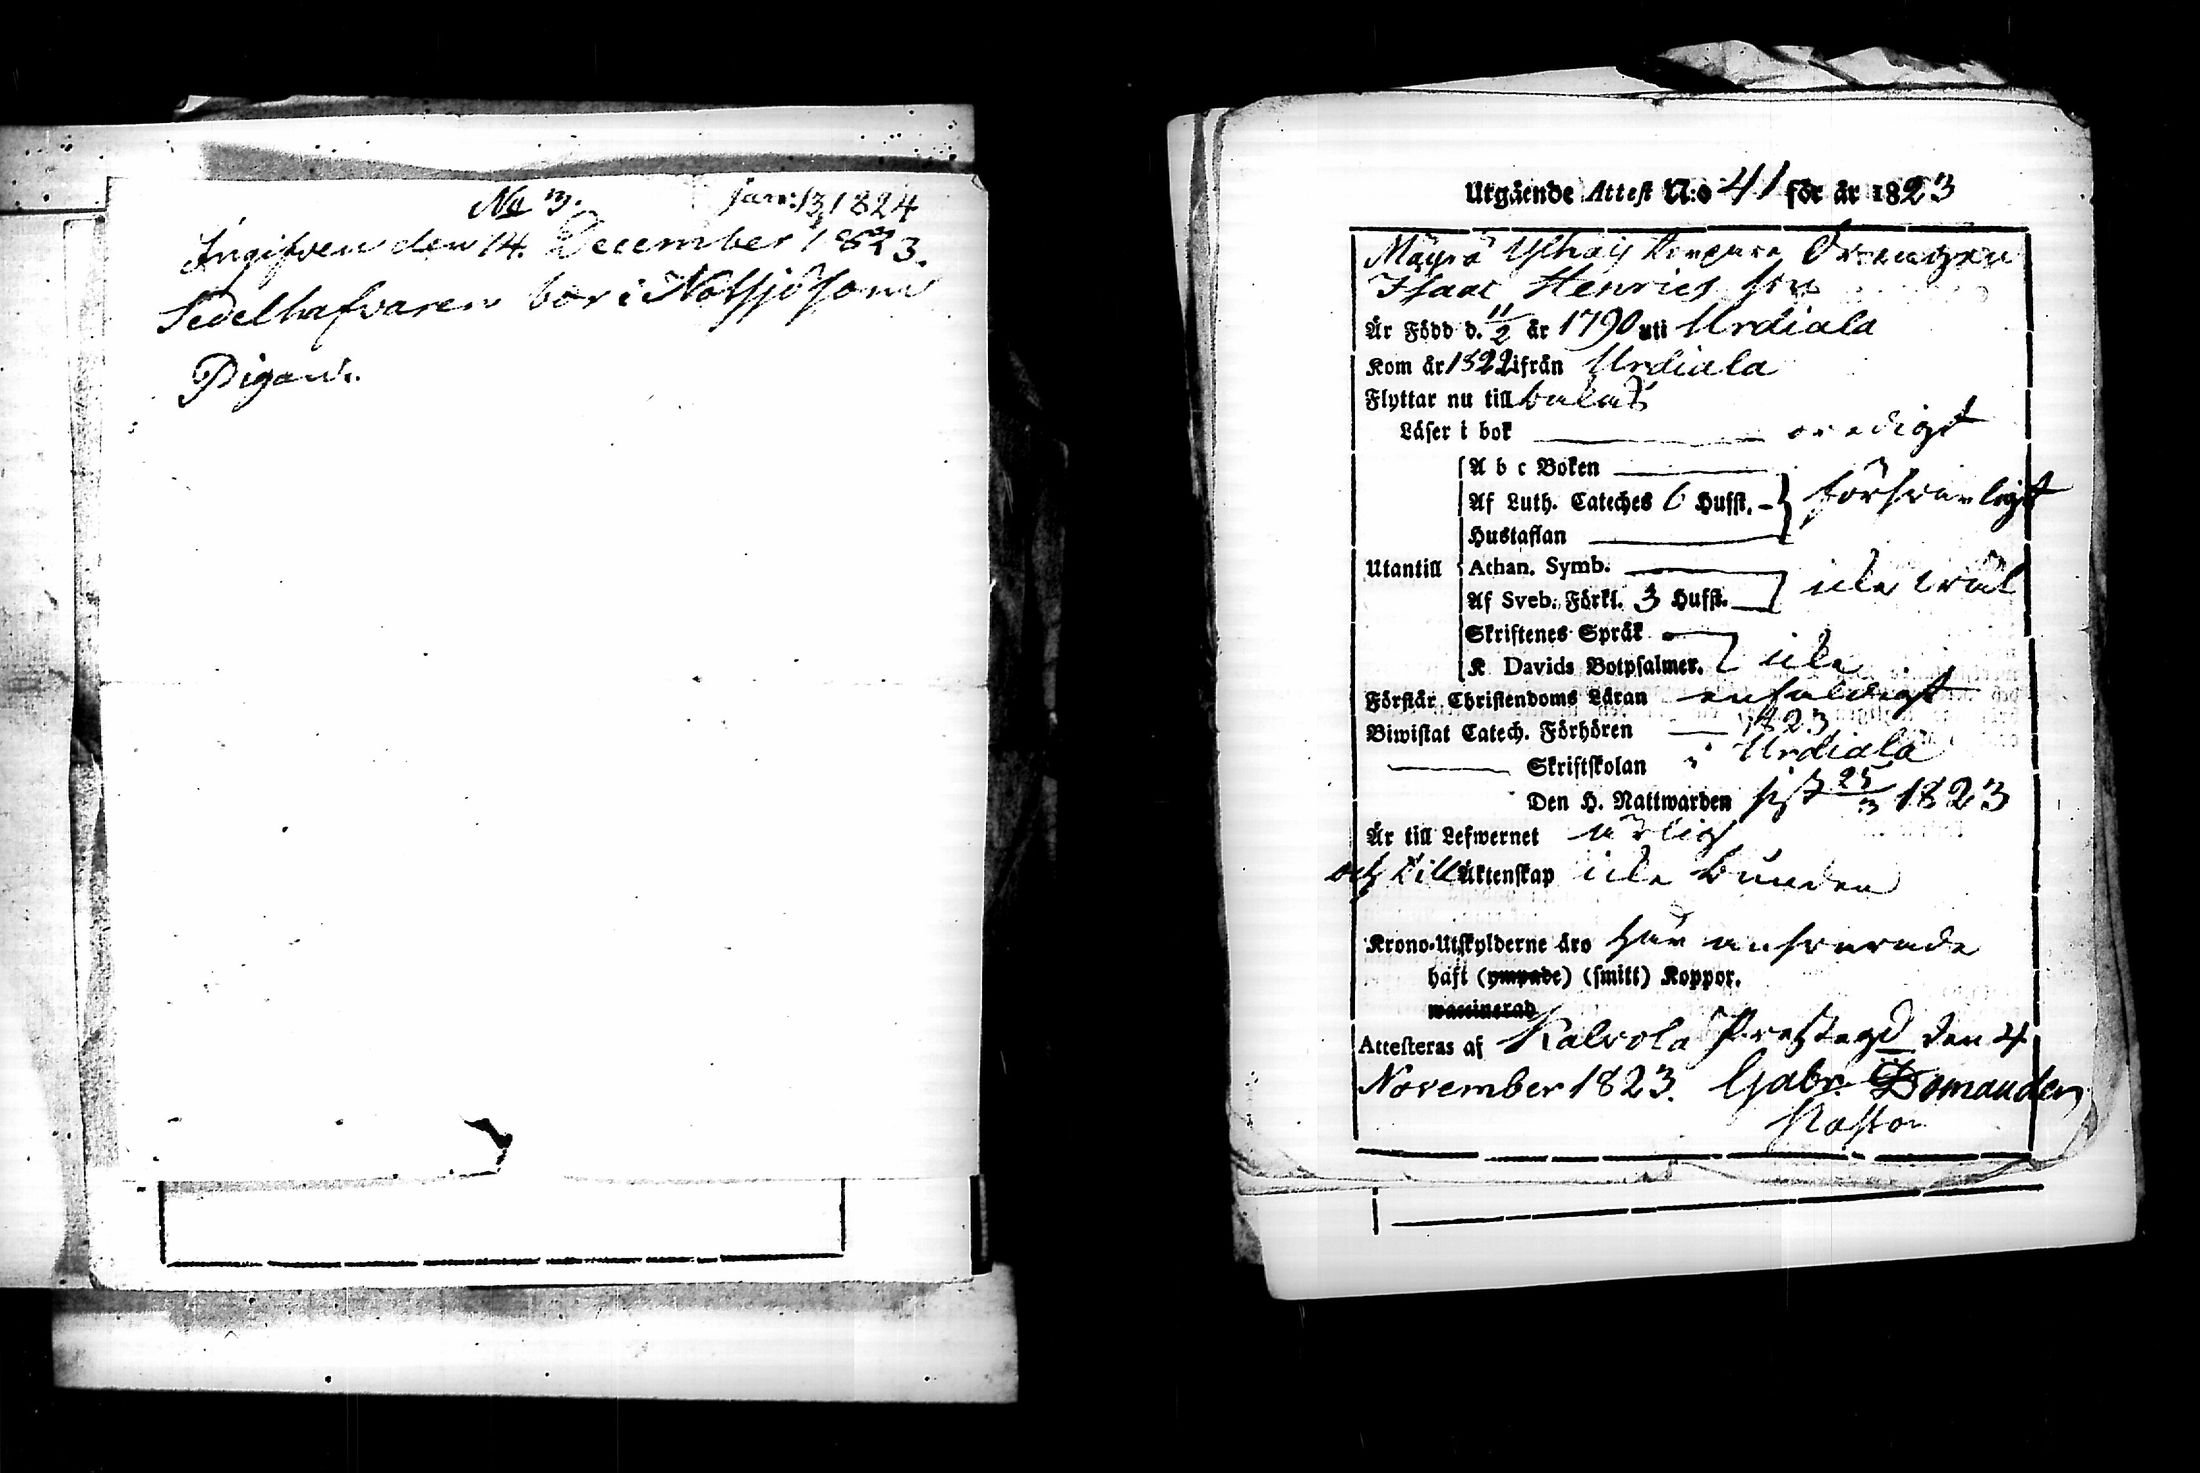 No 3. Jan: 13 1824
Ingifven den 14. December 1823.
Sedelhafvaren bor i Notsjö som
Pigan.
Utgående Attest N:o 41 för år 1823
Drengen
Isaac Henrics son
Är Född d. 11/2 år 1790 uti Urdiala
Kom år 1822 ifrån Urdiala
Flyttar nu till
Läser i bok oredigt
A b c Boken
Af Luth. Cateches 6 Hufst. försvarligt
Hustaflan
Utantill Athan. Symb.
Af Sveb. Förkl. 3 Hufst. icke wäl
Skriftenes Språk
K Davids Botpsalmer. icke
Förstår Christendoms Läran enfaldigt
Biwistat Catech. Förhören 1823
Skriftskolan i Urdiala
Den H. Nattwarden sist 25/3 1823
Är till Lefwernet ärlig
och till Äktenskap icke bunden
Krono-Utskylderne äro här ansvarade
haft (ympade) (smitt) Koppor.
waccinerad
Attesteras af Kalvola Prestegd den 4
November 1823. Gabr.
Pastor